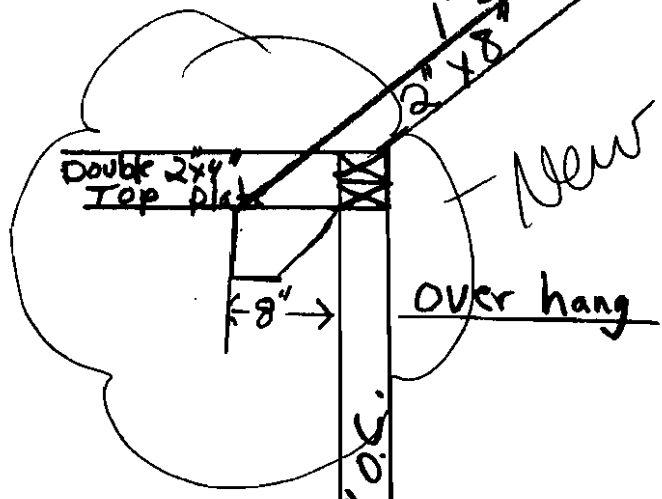 2" x 8"
Double 2x4"
Top plate
New
8"
Over hang
O.C.